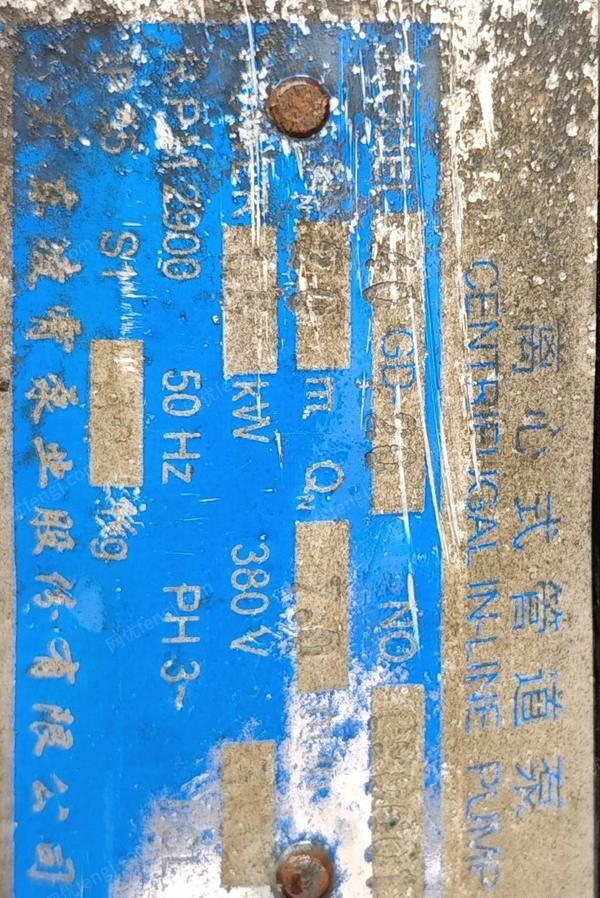 离心式管道泵
CENTRIFUGAL IN-LINE PUMP
MODEL 40 GD-20 NO
20 m Q 7.0
kW 380V
RPM 2900 50Hz PH 3~
IP 55 ST kg
广东凌霄泵业股份有限公司